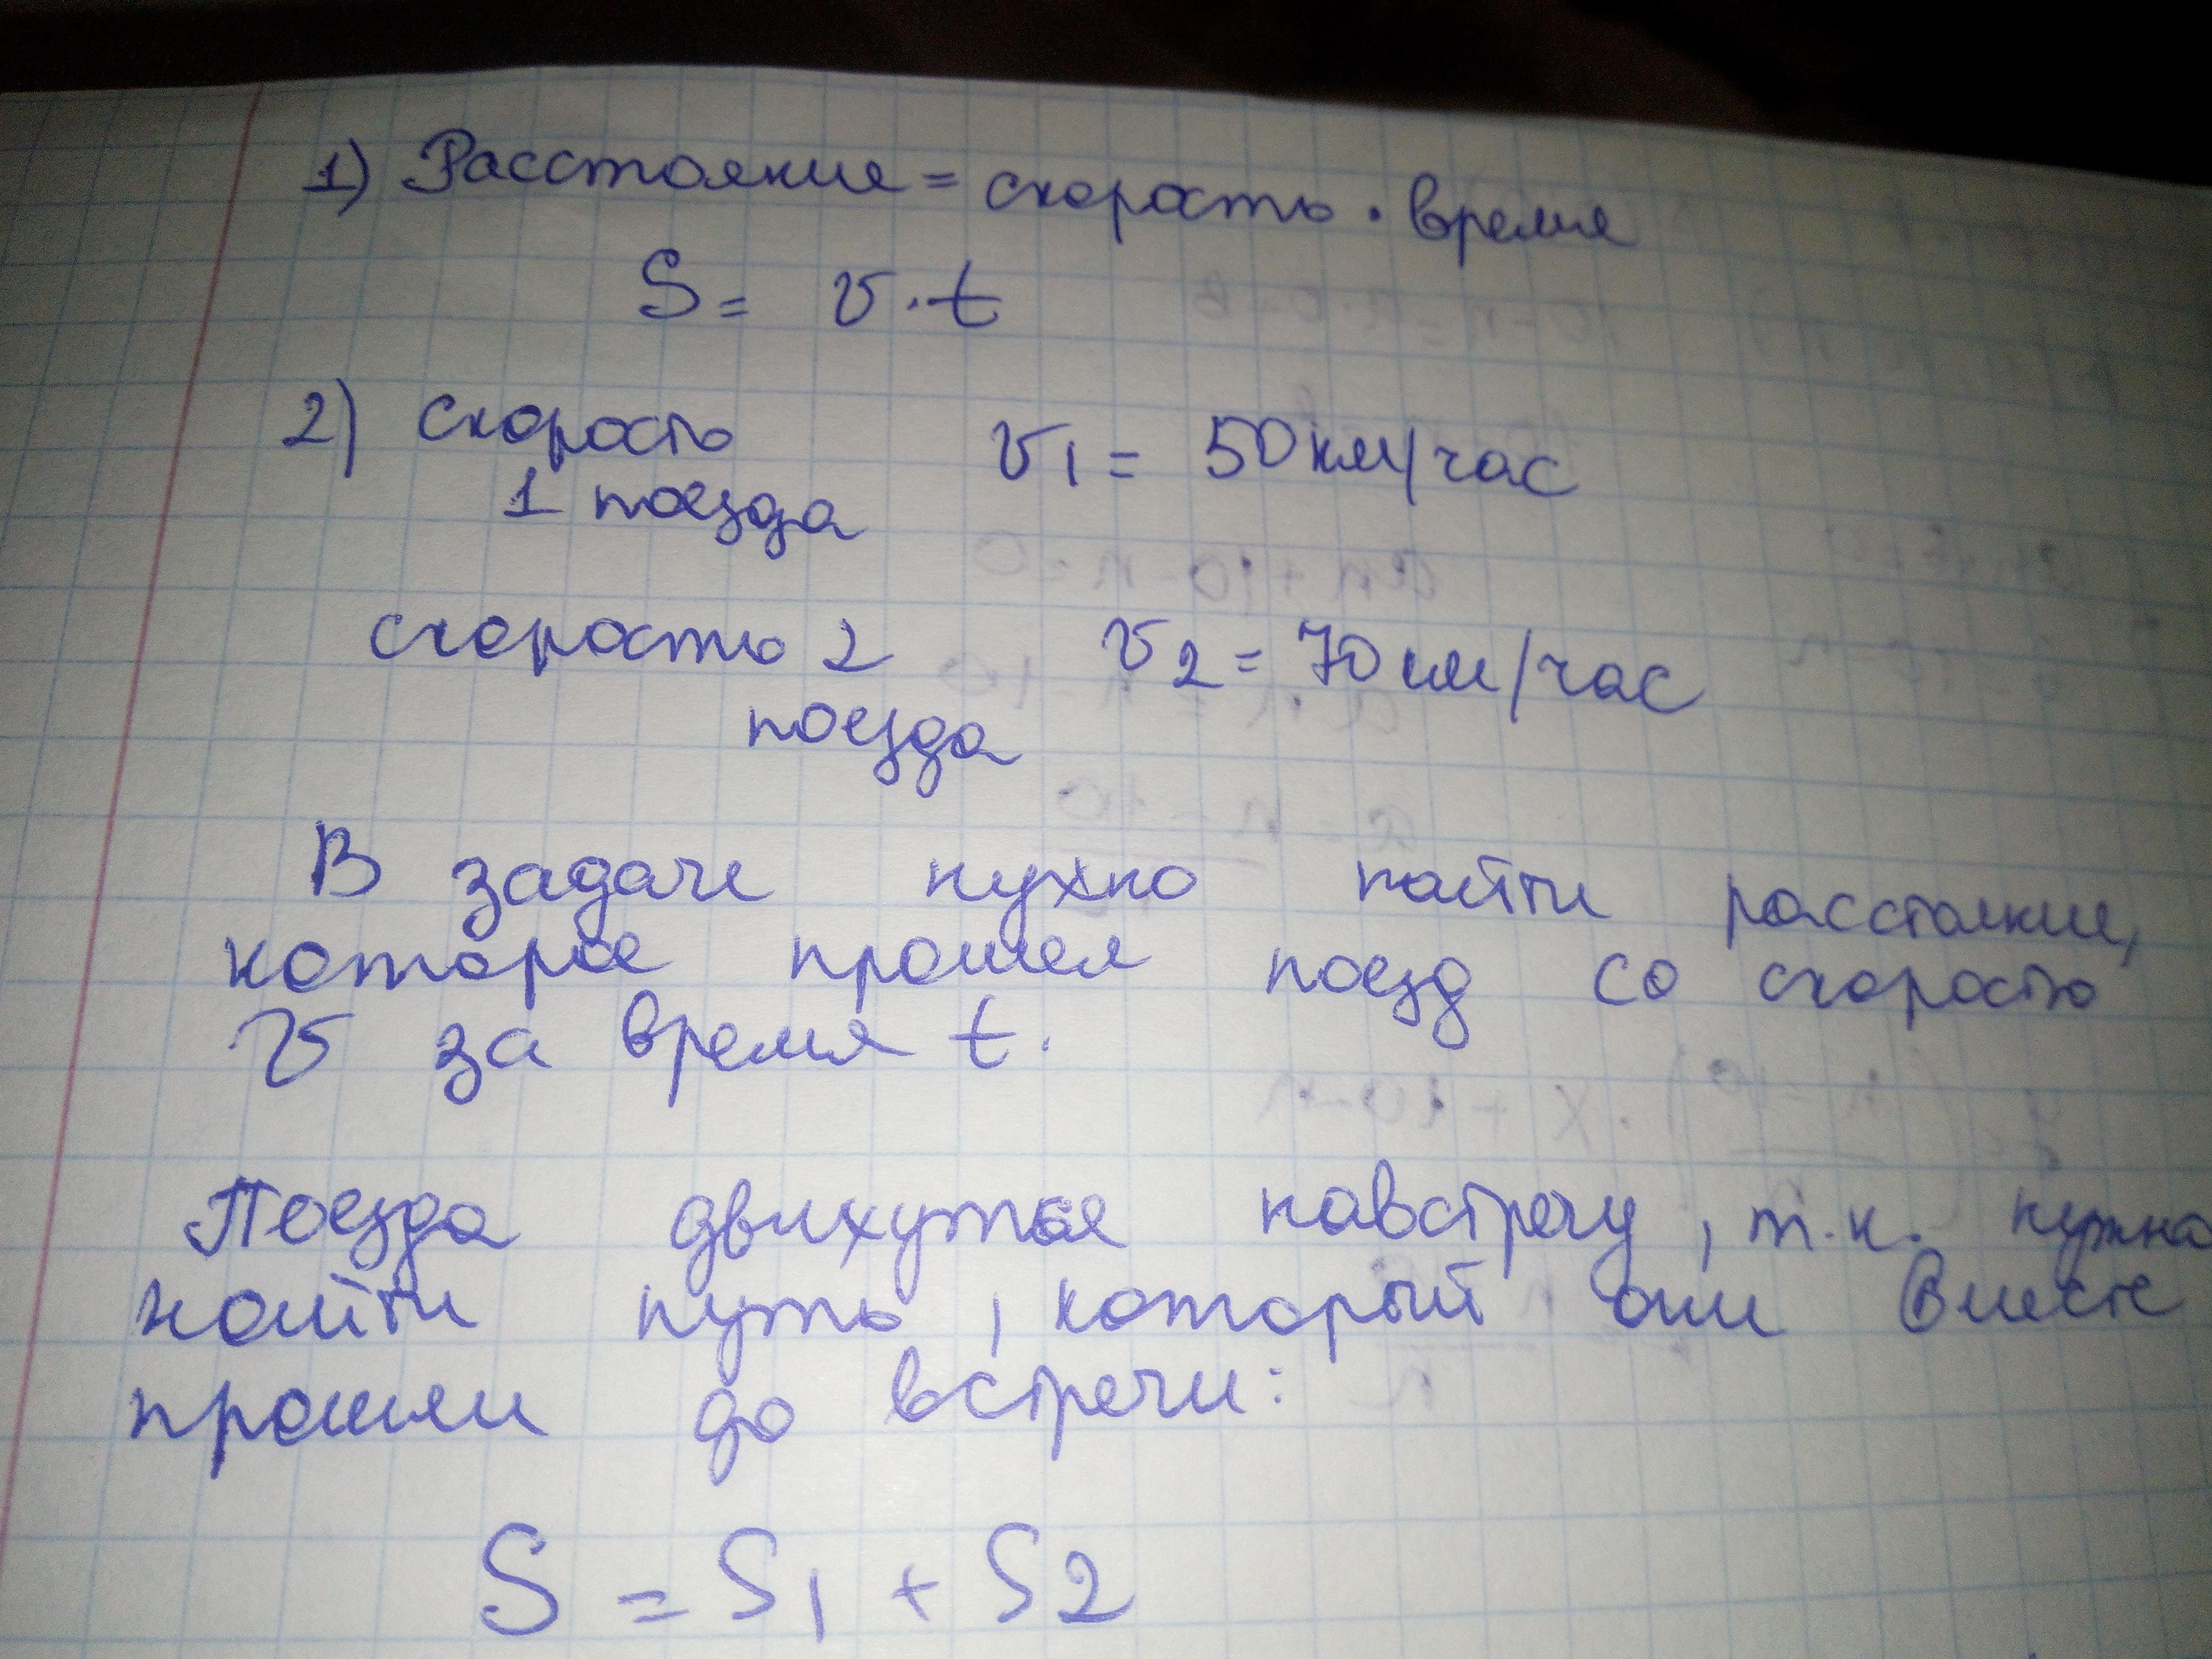 1) Расстояние = скорость · время
S = v · t
2) скорость v1 = 50 км/час
1 поезда
скорость 2 v2 = 70 км/час
поезда
В задаче нужно найти расстояние,
которое прошел поезд со скорость
v за время t.
Поезда движутся навстречу, т.к. нужно
найти путь, который они вместе
прошли до встречи:
S = S1 + S2